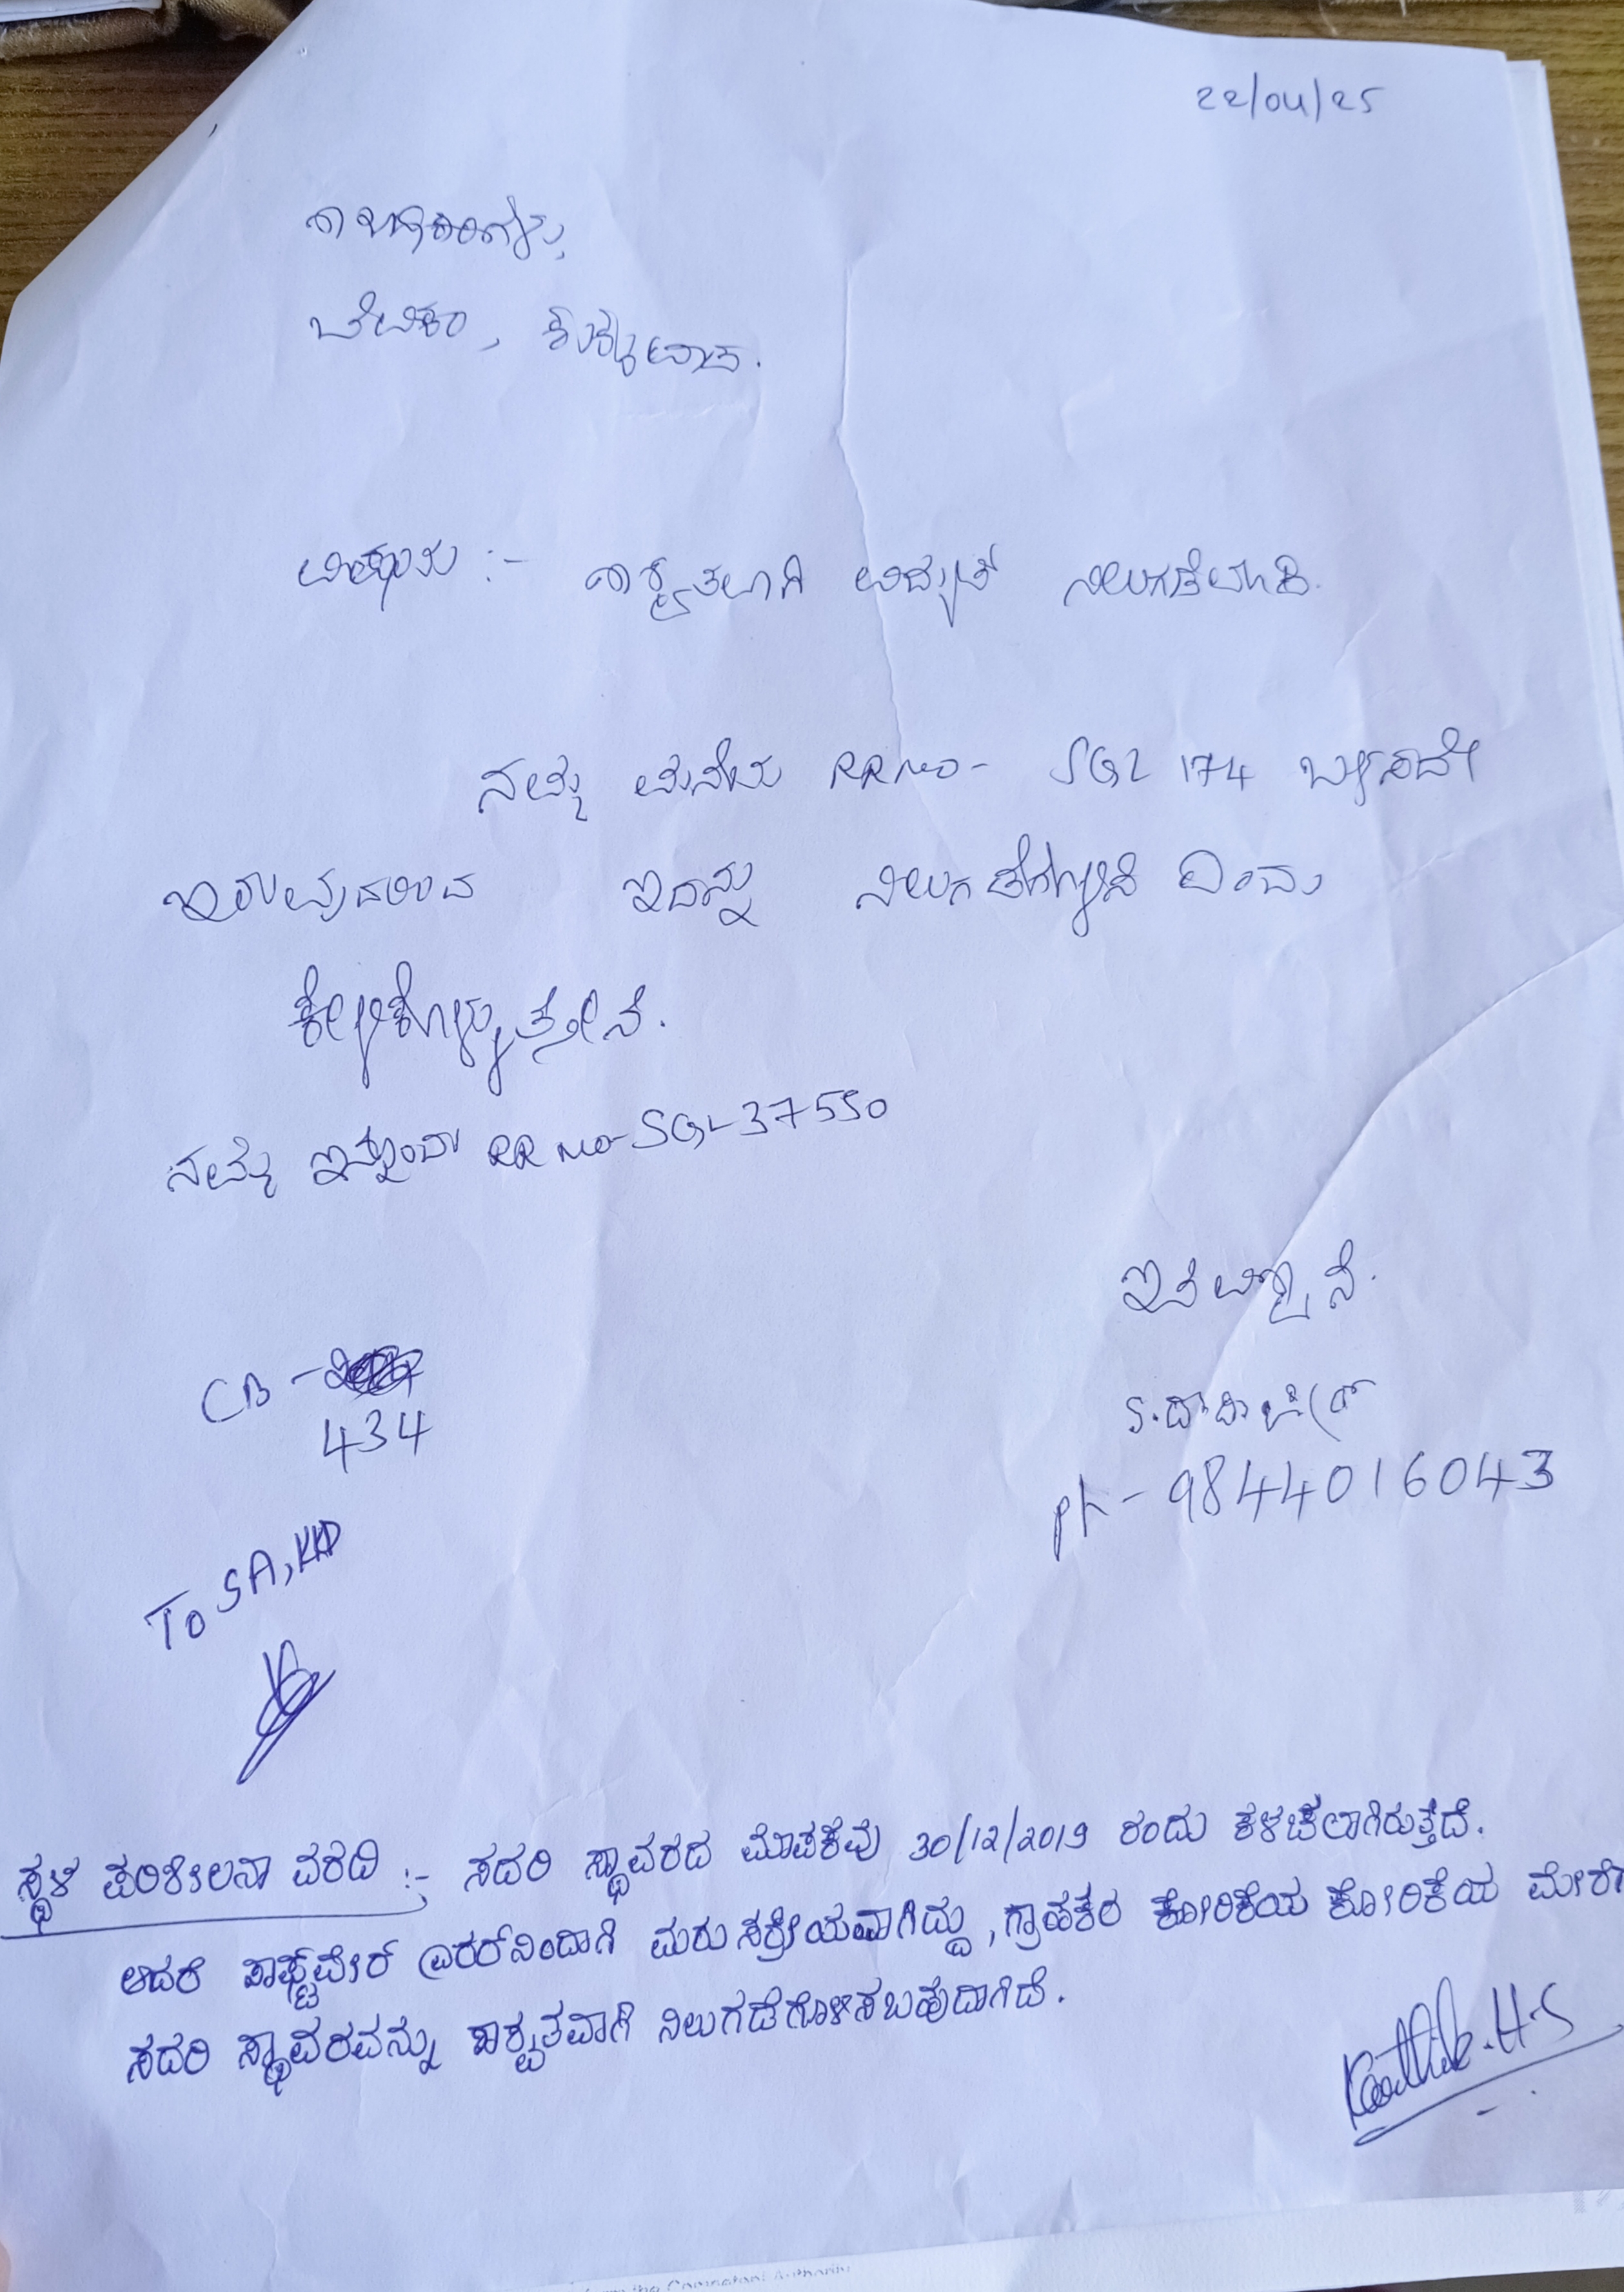 22/04/25
ಬೆವಿಕಂ,
ವಿಷಯ :- ಶಾಶ್ವತವಾಗಿ ವಿದ್ಯುತ್ ನಿಲುಗಡೆಮಾಡಿ.
ನಮ್ಮ ಮನೆಯ RR NO- SGL 174 ಬಳಸದೇ
ಇರುವುದರಿಂದ ಇದನ್ನು ನಿಲುಗಡೆಗೊಳಿಸಿ ಎಂದು
ಕೇಳಿಕೊಳ್ಳುತ್ತೇನೆ.
ನಮ್ಮ ಇನ್ನೊಂದು RR NO-SGL-37550
ಇತಿ ನಿಮ್ಮ
CB -
434
Ph- 9844016043
To SA, KHD
ಸ್ಥಳ ಪರಿಶೀಲನಾ ವರದಿ :- ಸದರಿ ಸ್ಥಾವರದ ಮಾಪಕವು 30/12/2019 ರಂದು ಕಳಚಲಾಗಿರುತ್ತದೆ.
ಆದರೆ ಸಾಫ್ಟ್‌ವೇರ್ ಎರರ್‌ನಿಂದಾಗಿ ಮರು ಸಕ್ರೀಯವಾಗಿದ್ದು, ಗ್ರಾಹಕರ ಕೋರಿಕೆಯ ಕೋರಿಕೆಯ ಮೇರೆಗೆ
ಸದರಿ ಸ್ಥಾವರವನ್ನು ಶಾಶ್ವತವಾಗಿ ನಿಲುಗಡೆಗೊಳಿಸಬಹುದಾಗಿದೆ.
Karthik.H.S